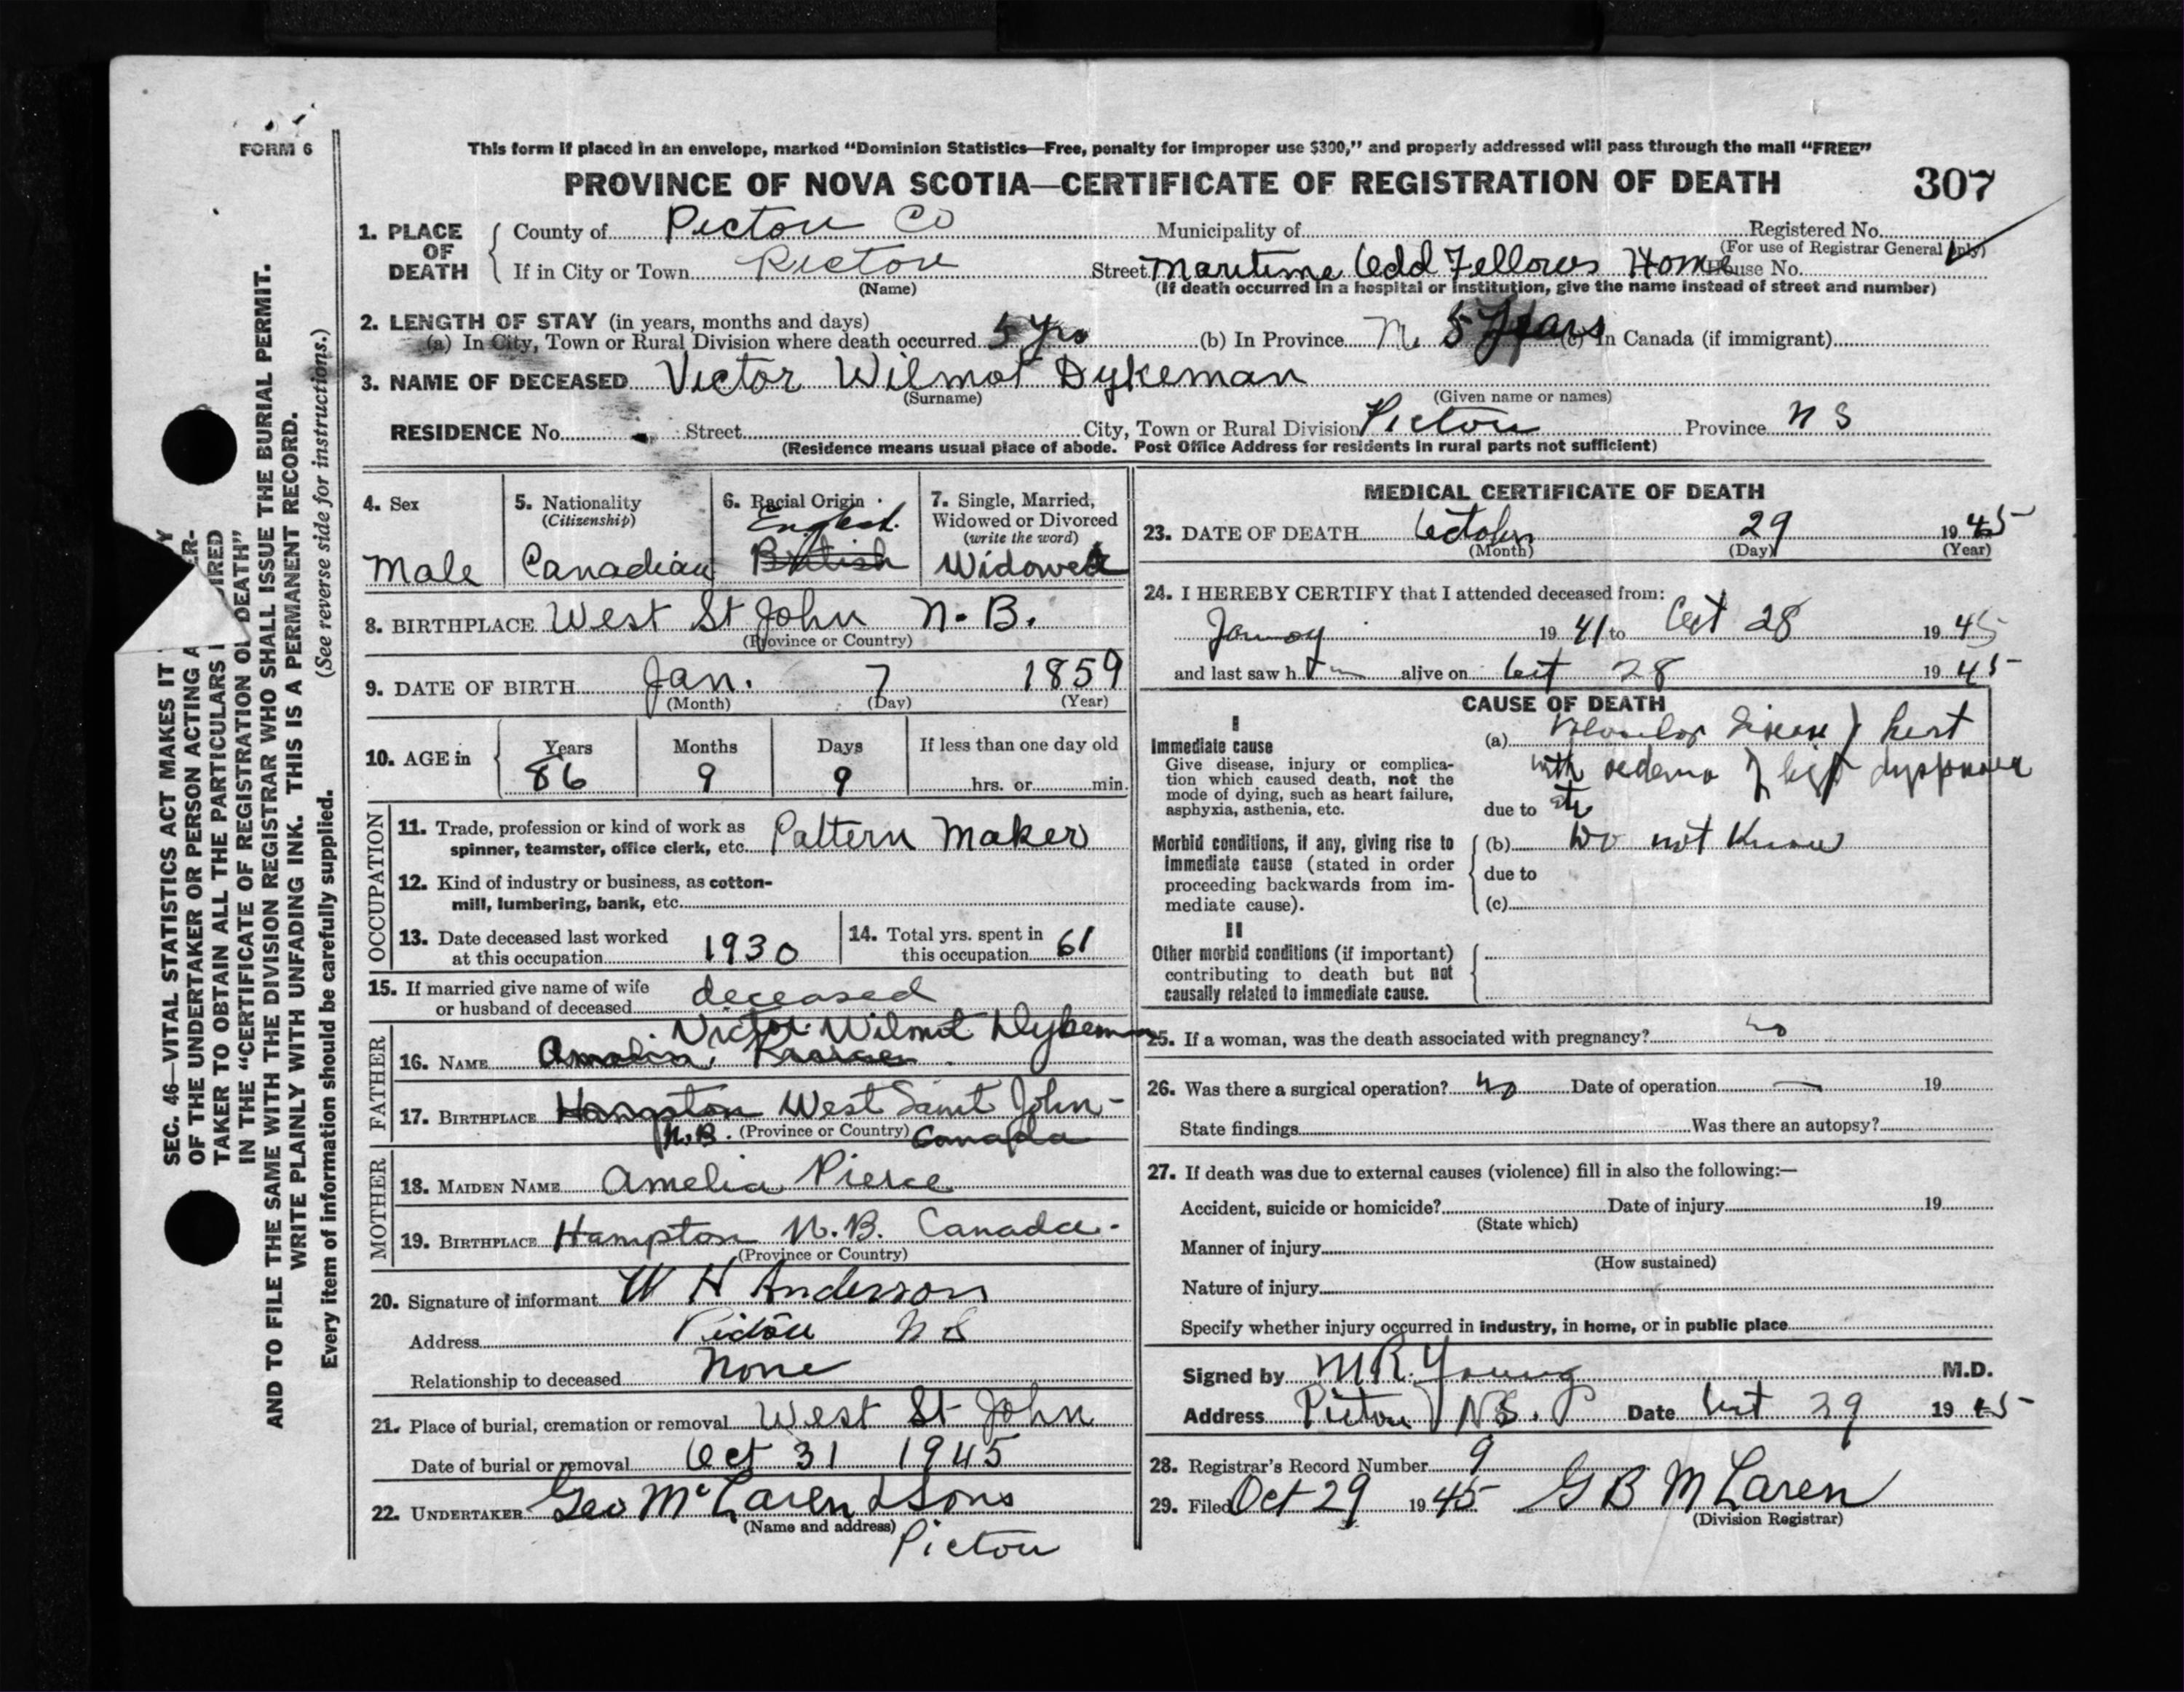 FORM 6
This form if placed in an envelope, marked "Dominion Statistics—Free, penalty for improper use $300," and properly addressed will pass through the mail "FREE"
PROVINCE OF NOVA SCOTIA—CERTIFICATE OF REGISTRATION OF DEATH
307
1. PLACE OF DEATH
County of Pictou Co Municipality of Registered No.
(For use of Registrar General only)
If in City or Town Pictou Street Maritime Odd Fellows Home House No.
(Name) (If death occurred in a hospital or institution, give the name instead of street and number)
2. LENGTH OF STAY (in years, months and days)
(a) In City, Town or Rural Division where death occurred 5 yrs (b) In Province 5 Years (c) In Canada (if immigrant)
3. NAME OF DECEASED Victor Wilmot Dykeman
(Surname) (Given name or names)
RESIDENCE No. Street City, Town or Rural Division Pictou Province N S
(Residence means usual place of abode. Post Office Address for residents in rural parts not sufficient)
4. Sex
Male
5. Nationality
(Citizenship)
Canadian
6. Racial Origin
English
British
7. Single, Married,
Widowed or Divorced
(write the word)
Widowed
8. BIRTHPLACE West St John N.B.
(Province or Country)
9. DATE OF BIRTH Jan. 7 1859
(Month) (Day) (Year)
10. AGE in
Years Months Days If less than one day old
86 9 9 hrs. or min.
OCCUPATION
11. Trade, profession or kind of work as
spinner, teamster, office clerk, etc. Pattern Maker
12. Kind of industry or business, as cotton-
mill, lumbering, bank, etc.
13. Date deceased last worked
at this occupation 1930
14. Total yrs. spent in
this occupation 61
15. If married give name of wife
or husband of deceased deceased
FATHER
Victor Wilmot Dykeman
16. NAME Amelia
17. BIRTHPLACE Hampton West Saint John-
N.B. (Province or Country) Canada
MOTHER
18. MAIDEN NAME Amelia Pierce
19. BIRTHPLACE Hampton N.B. Canada.
(Province or Country)
20. Signature of informant W H Anderson
Address Pictou N S
Relationship to deceased None
21. Place of burial, cremation or removal West St John
Date of burial or removal Oct 31 1945
22. UNDERTAKER Geo McLaren & Sons
(Name and address) Pictou
MEDICAL CERTIFICATE OF DEATH
23. DATE OF DEATH October 29 1945
(Month) (Day) (Year)
24. I HEREBY CERTIFY that I attended deceased from:
1941 to Oct 28 1945
and last saw h im alive on Oct 28 1945
CAUSE OF DEATH
I
Immediate cause
Give disease, injury or complica-
tion which caused death, not the
mode of dying, such as heart failure,
asphyxia, asthenia, etc.
(a) Valvular disease of heart
with oedema of legs dyspnoea
due to etc
Morbid conditions, if any, giving rise to
immediate cause (stated in order
proceeding backwards from im-
mediate cause).
(b) Do not Know
due to
(c)
II
Other morbid conditions (if important)
contributing to death but not
causally related to immediate cause.
25. If a woman, was the death associated with pregnancy? no
26. Was there a surgical operation? no Date of operation — 19
State findings Was there an autopsy?
27. If death was due to external causes (violence) fill in also the following:—
Accident, suicide or homicide? Date of injury 19
(State which)
Manner of injury
(How sustained)
Nature of injury
Specify whether injury occurred in industry, in home, or in public place
Signed by M R. Young M.D.
Address Pictou N.S. Date Oct 29 1945
28. Registrar's Record Number 9
29. Filed Oct 29 1945 G B McLaren
(Division Registrar)
SEC. 46—VITAL STATISTICS ACT MAKES IT
OF THE UNDERTAKER OR PERSON ACTING A
TAKER TO OBTAIN ALL THE PARTICULARS
IN THE "CERTIFICATE OF REGISTRATION OF DEATH"
AND TO FILE THE SAME WITH THE DIVISION REGISTRAR WHO SHALL ISSUE THE BURIAL PERMIT.
WRITE PLAINLY WITH UNFADING INK. THIS IS A PERMANENT RECORD.
Every item of information should be carefully supplied. (See reverse side for instructions.)